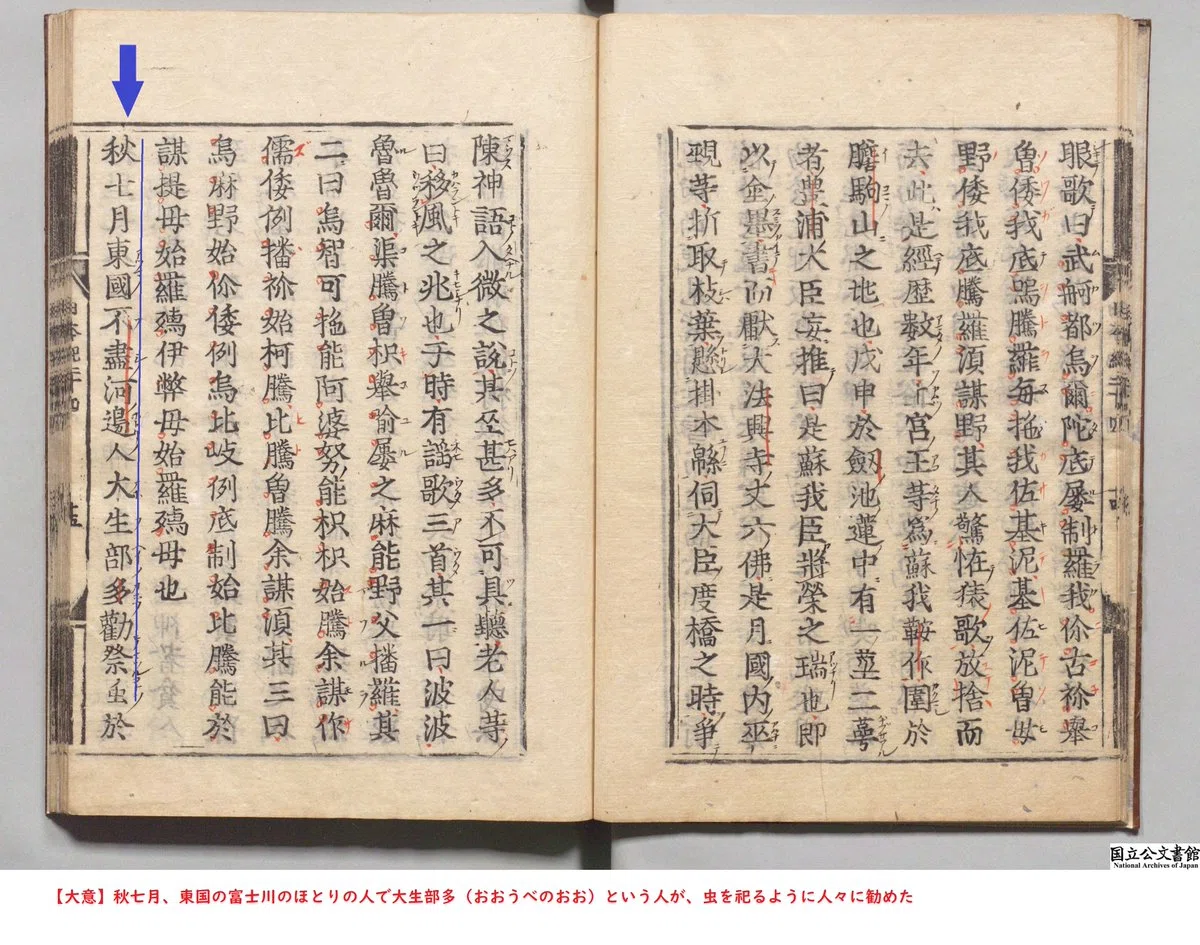 眼歌曰武舸都烏爾陀底屢制羅我伱古祢舉
曾倭我底嗚騰羅毎拖我佐基泥基佐泥曾母
野倭我底騰羅湏謀野其人驚恠猿歌放捨而
去此是經歴数年上宮王等為蘇我鞍作圍於
膽駒山之兆也戊申於劔池蓮中有一莖二萼
者豊浦大臣妄推曰是蘇我臣將榮之瑞也即
以金墨書而獻大法興寺丈六佛是月國内巫
覡等折取枝葉懸掛木綿伺大臣度橋之時爭
陳神語入微之說其巫甚多不可具聽老人等
曰移風之兆也于時有謡歌三首其一曰波波
魯魯爾渠騰曾枳舉喻屢之麻能野父播羅其
二曰烏智可拖能阿婆努能枳枳始騰余謀作
儒倭例播祢始柯騰比騰曾騰余謀湏其三曰
烏麻野始伱倭例烏比岐例底制始比騰能於
謀提母始羅孺伊弊母始羅孺母也
秋七月東國不盡河邊人大生部多勸祭虫於
国立公文書館
National Archives of Japan
【大意】秋七月、東国の富士川のほとりの人で大生部多（おおうべのおお）という人が、虫を祀るように人々に勧めた